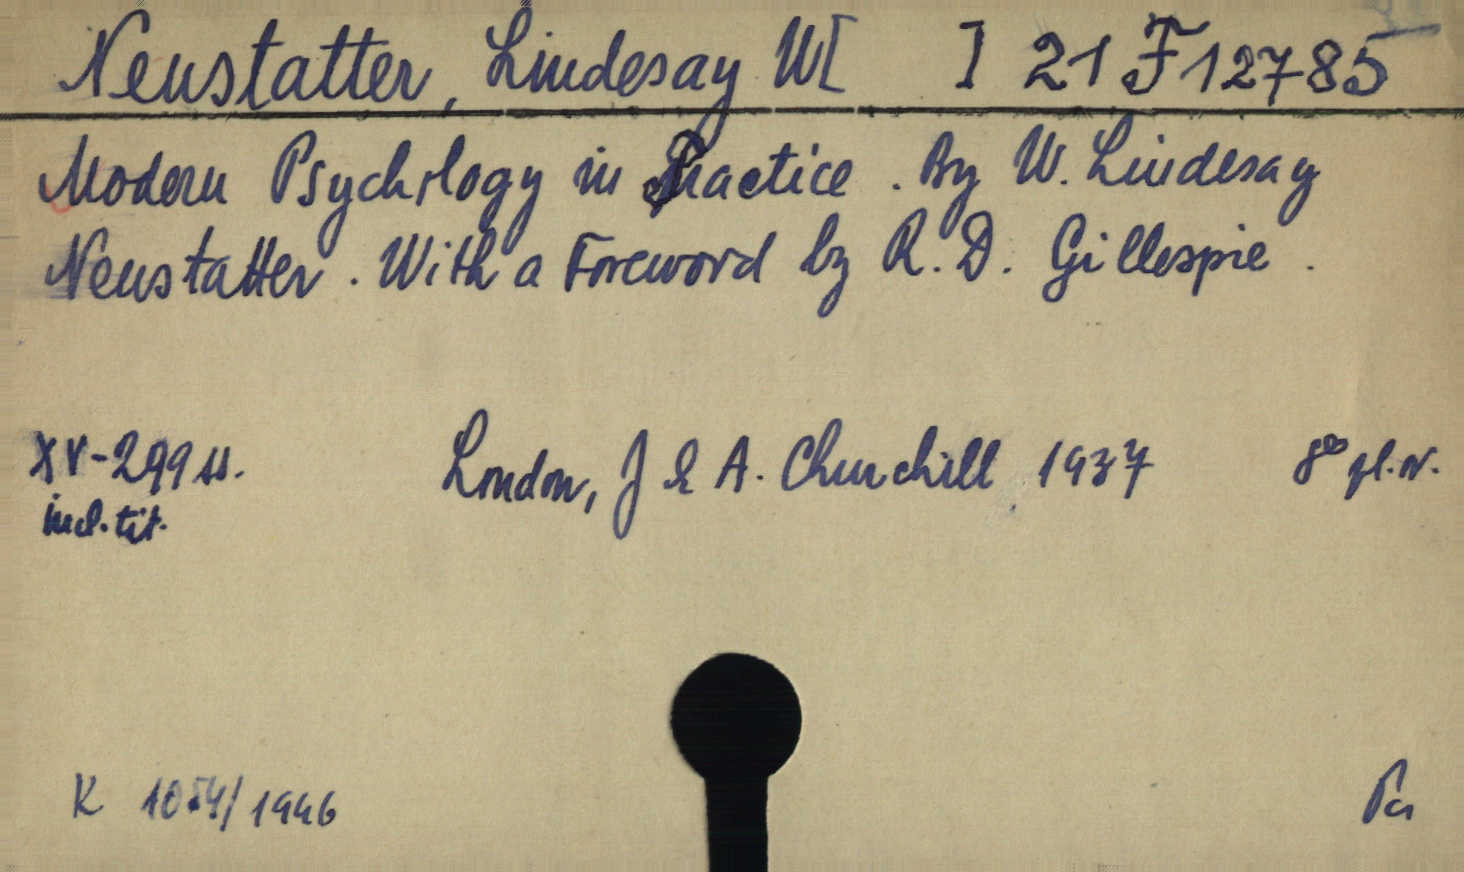 Neustatter, Lindesay W[ ] 21 F 12785
Modern Psychology in Practice. By W. Lindesay
Neustatter. With a Foreword by R. D. Gillespie.
XV-299 ss. London, J & A. Churchill 1937 8° pl. v.
incl. tit.
K 1054/1946